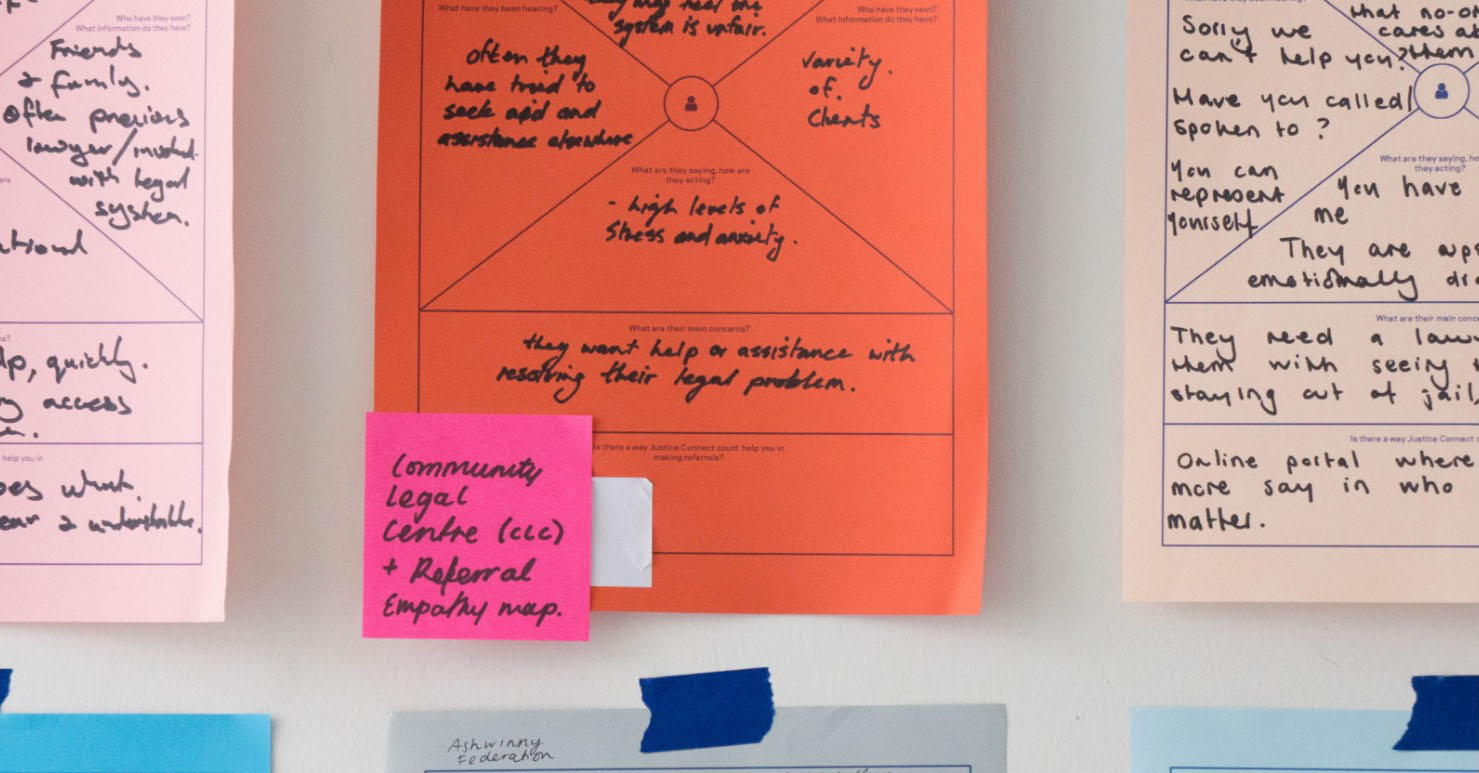 Who have they seen?
What information do they have?
Friends
& family.
often previous
lawyer/
with legal
system.
help you in
What have they been hearing?
Who have they seen?
What information do they have?
they may feel the
system is unfair.
often they
have tried to
seek aid and
assistance elsewhere
variety
of
clients
What are they saying, how are
they acting?
- high levels of
stress and anxiety.
What are their main concerns?
they want help or assistance with
resolving their legal problem.
Is there a way Justice Connect could help you in
making referrals?
Community
Legal
Centre (CLC)
+ Referral
Empathy map.
quickly.
access
what
that no-o
cares a
them
Sorry we
can't help you?
Have you called/
spoken to ?
You can
represent
yourself
What are they saying, ho
they acting?
you have
me
They are ups
emotionally dr
What are their main conc
They need a lawy
them with seeing
staying out of jail,
Is there a way Justice Connect c
Online portal where
more say in who
matter.
Ashwinny
Federation